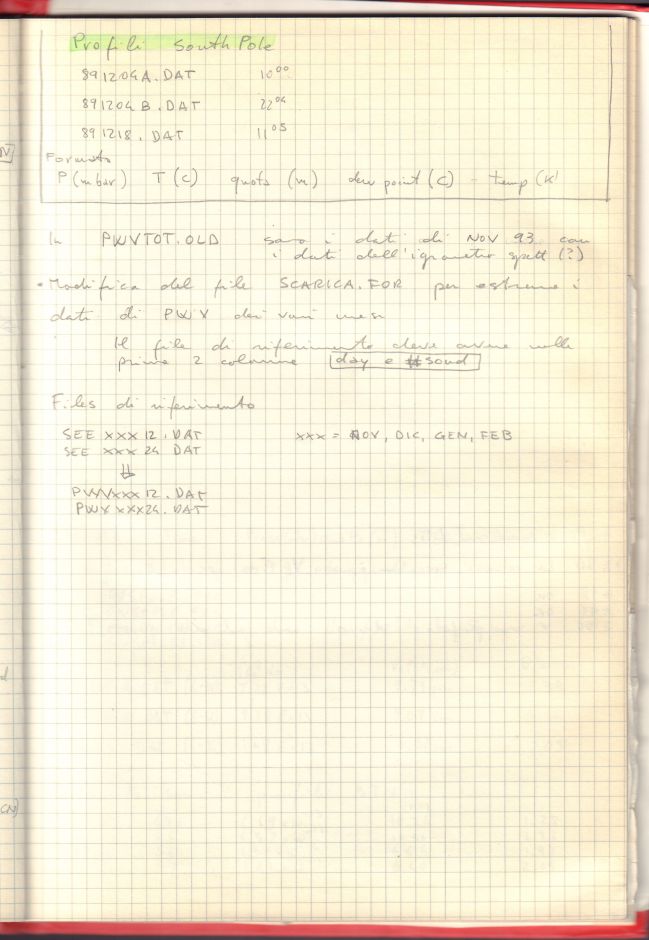 Profili South Pole
891204A.DAT 10⁰⁰
891204B.DAT 22⁰⁴
891218.DAT 11⁰⁵
Formato
P (mbar) T (C) quota (m) dew point (C) - temp (K)
In PWVTOT.OLD sono i dati di NOV 93 con
i dati dell'igrometro spett (?)
• Modifica del file SCARICA.FOR per estrarre i
dati di PWV dei vari mesi
Il file di riferimento deve avere nelle
prime 2 colonne day e #sond
Files di riferimento
SEE XXX 12. DAT XXX = NOV, DIC, GEN, FEB
SEE XXX 24 DAT
⇓
PWVXXX12. DAT
PWV XXX24. DAT
N]
d
CN]